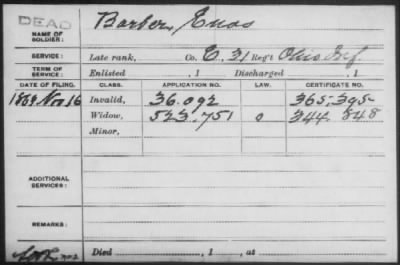 DEAD
NAME OF SOLDIER: Barber, Enos
SERVICE: Late rank, Co. E. 31 Reg't Ohio Inf.
TERM OF SERVICE: Enlisted , 1 Discharged , 1
DATE OF FILING. CLASS. APPLICATION NO. LAW. CERTIFICATE NO.
Nov 16 Invalid, 36.092 365,395
Widow, 523,751 0 344.848
Minor,
ADDITIONAL SERVICES:
REMARKS:
Died , 1 , at